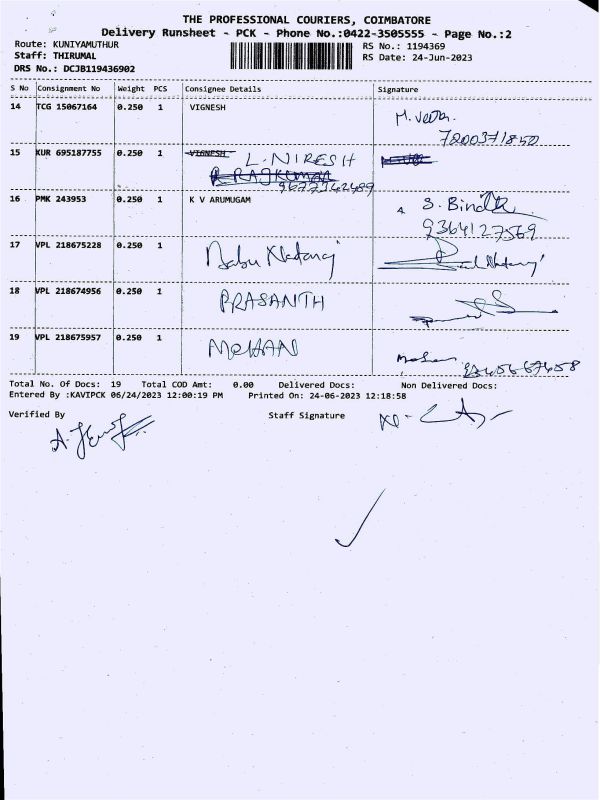 THE PROFESSIONAL COURIERS, COIMBATORE
Delivery Runsheet - PCK - Phone No.:0422-3505555 - Page No.:2
Route: KUNIYAMUTHUR RS No.: 1194369
Staff: THIRUMAL RS Date: 24-Jun-2023
DRS No.: DCJB119436902
S No Consignment No Weight PCS Consignee Details Signature
14 TCG 15067164 0.250 1 VIGNESH
7200371850
15 KUR 695187755 0.250 1 VIGNESH L.NIRESH
R RAJKUMAR
16 PMK 243953 0.250 1 K V ARUMUGAM S. Bindu
9364127569
17 VPL 218675228 0.250 1 Babu Natanaj
18 VPL 218674956 0.250 1 PRASANTH
19 VPL 218675957 0.250 1 MOHAN Mohan
Total No. Of Docs: 19 Total COD Amt: 0.00 Delivered Docs: Non Delivered Docs:
Entered By :KAVIPCK 06/24/2023 12:00:19 PM Printed On: 24-06-2023 12:18:58
Verified By Staff Signature